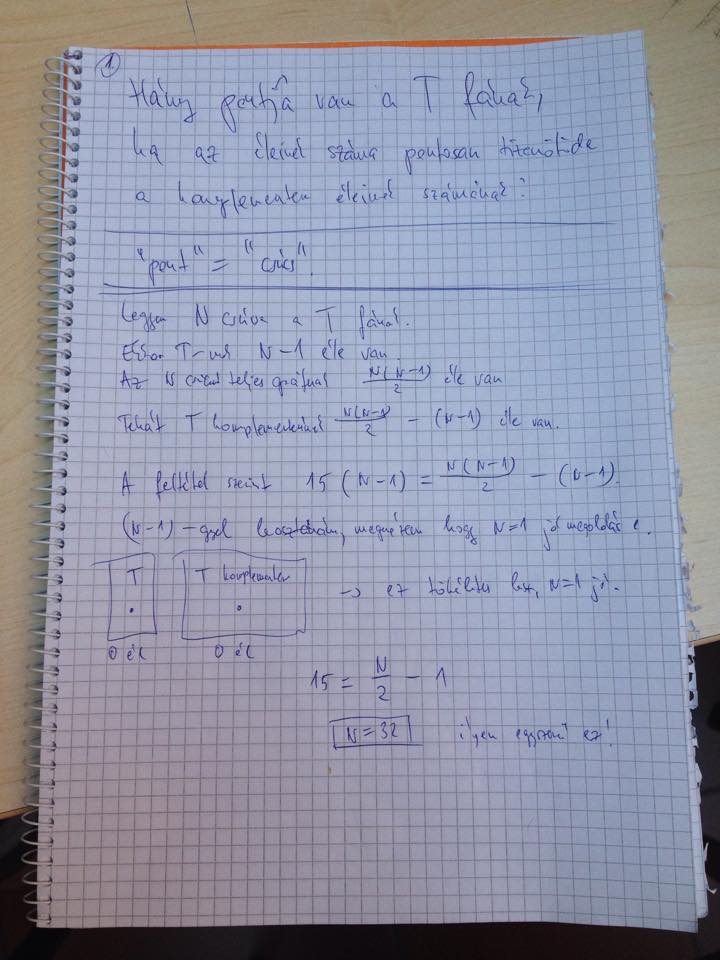 ①
Hány pontja van a T fának,
ha az éleinek száma pontosan tizenötöde
a komplementere éleinek számának?
"pont" = "csúcs".
Legyen N csúcsa a T fának.
Ekkor T-nek N-1 éle van.
Az N csúcsú teljes gráfnak N(N-1)/2 éle van
Tehát T komplementerének N(N-1)/2 - (N-1) éle van.
A feltétel szerint 15(N-1) = N(N-1)/2 - (N-1).
(N-1)-gyel leosztanám, megnézem hogy N=1 jó megoldás e.
T T komplementer → ez tökéletes lesz, N=1 jó.
0 él 0 él
15 = N/2 - 1
N=32 ilyen egyszerű ez!